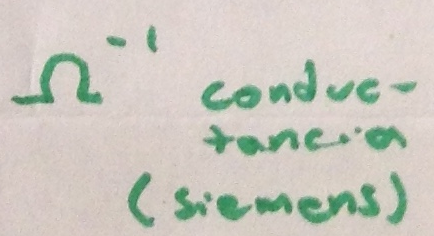 Ω⁻¹ conduc-
tancia
(siemens)